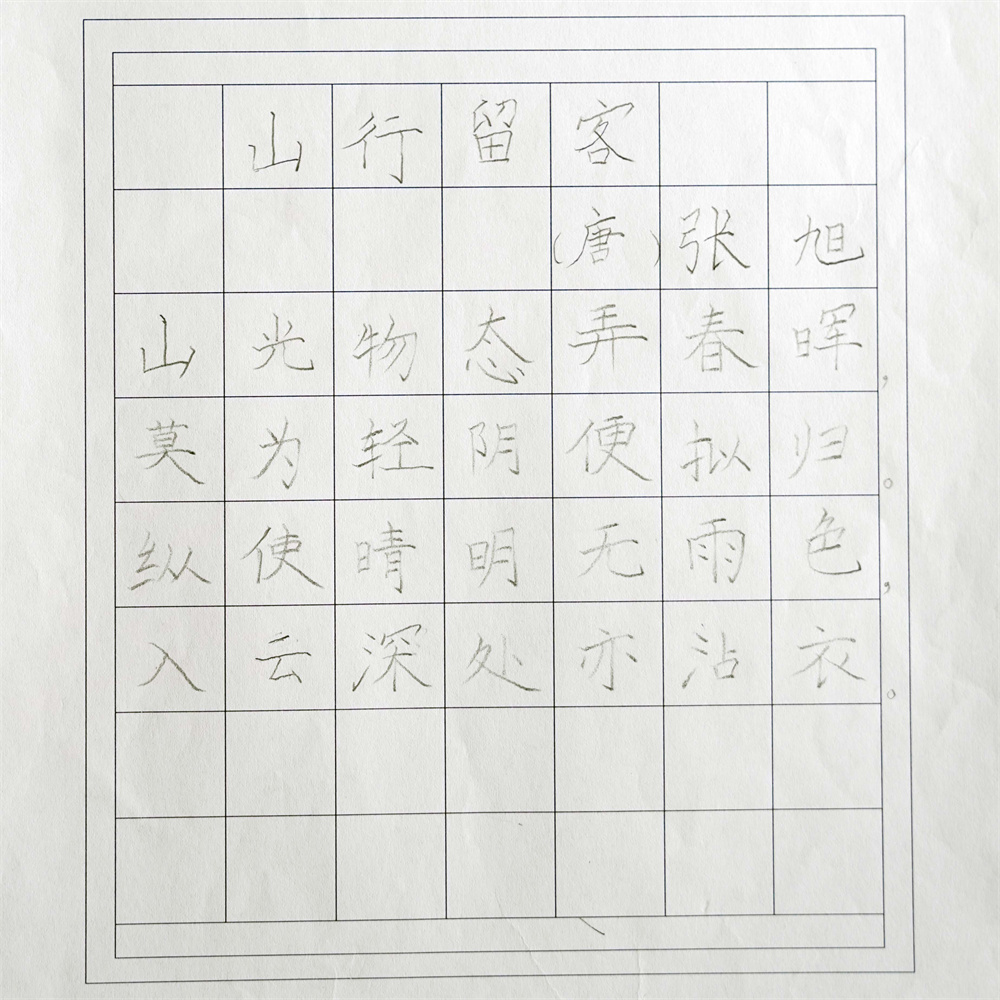 山行留客
（唐）张旭
山光物态弄春晖，
莫为轻阴便拟归。
纵使晴明无雨色，
入云深处亦沾衣。